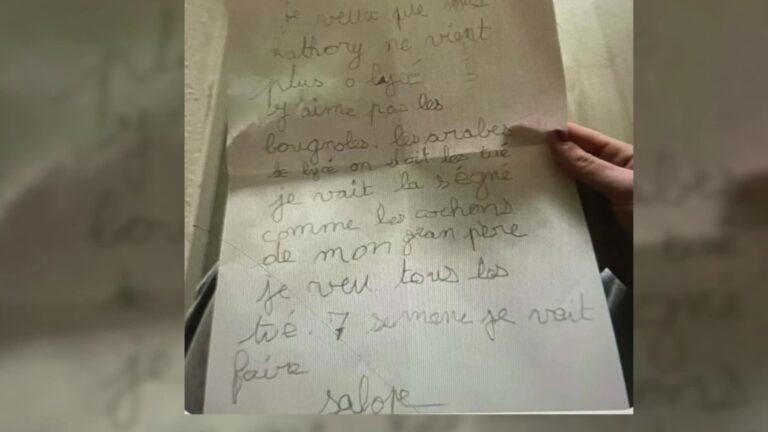 je veux que
Kathory ne vient
plus o lycé
y'aime pas les
bougnoles. les arabes
de lycé on doit les tué
je vait la ségné
comme les cochons
de mon gran père
je veu tous les
tué. 7 semene je vait
faire
salope